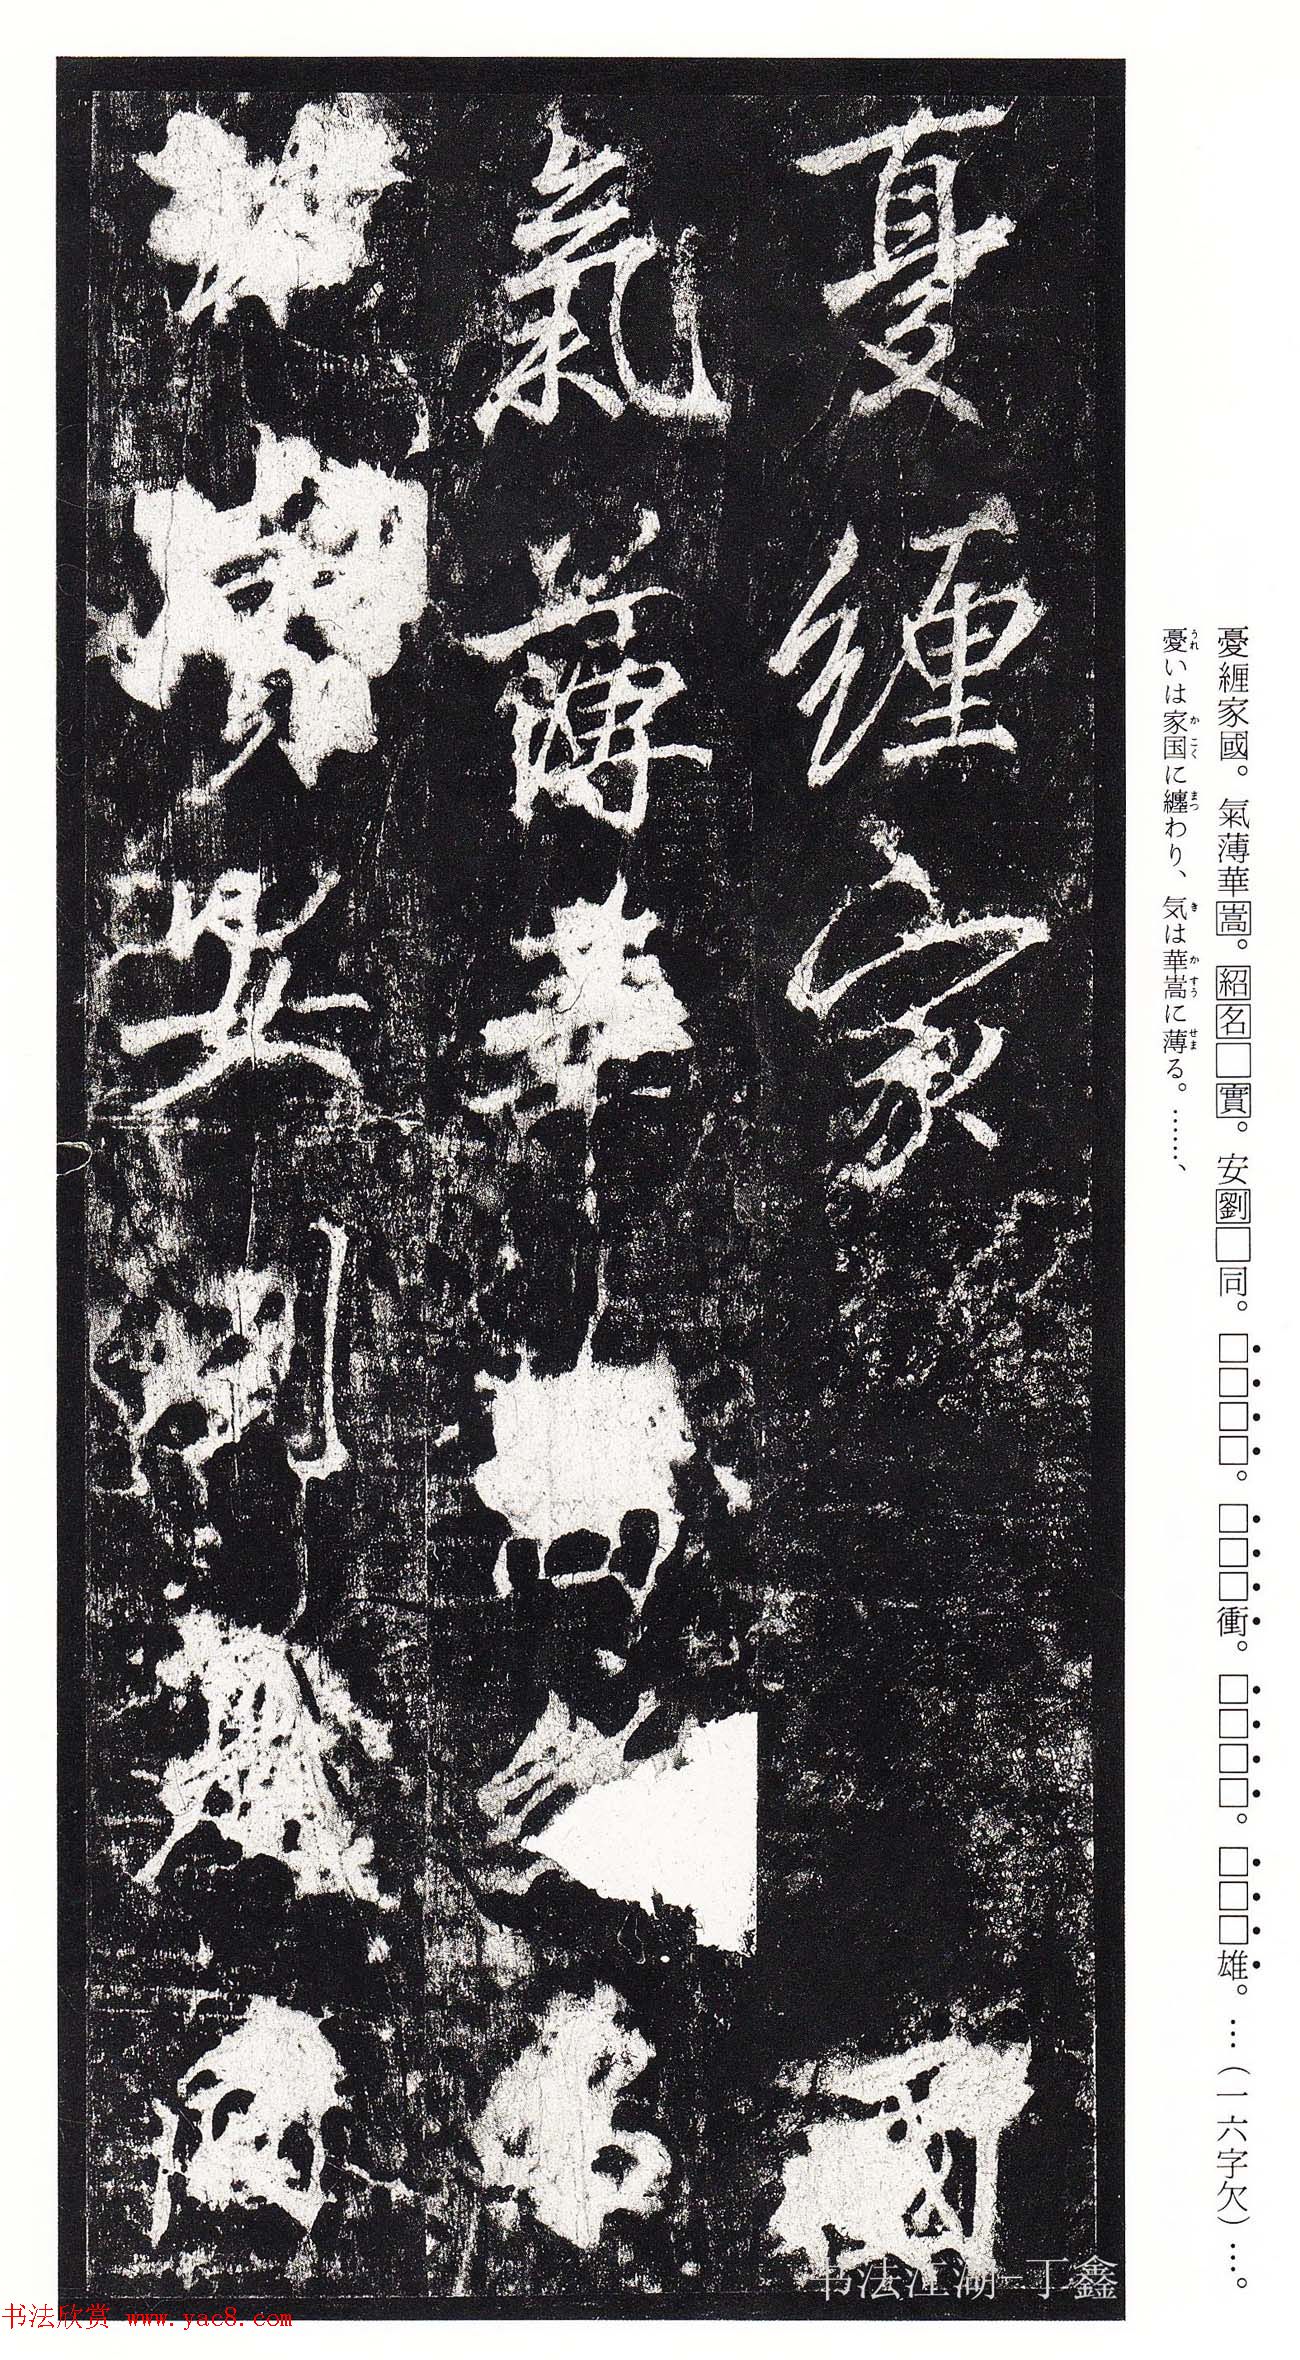 憂纏家國。氣薄華嵩。紹名□實。安劉□同。□□□□。□□□衝。□□□□。□□□雄。…(一六字欠)…。
憂いは家国に纏わり、気は華嵩に薄る。……、
うれ かこく まつ き かすう せま
憂纏家國
氣薄華
實安
书法江湖-丁鑫
书法欣赏 www.yac8.com